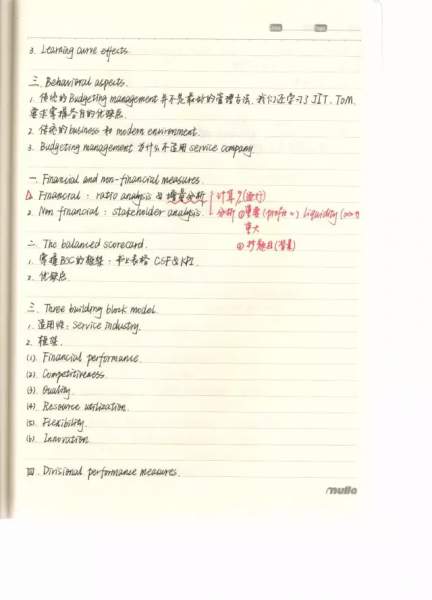 3. Learning curve effects.
三. Behavioral aspects.
1. 传统的Budgeting management并不是最好的管理方法. 我们还学习了JIT. TQM.
要求掌握各自的优缺点.
2. 传统的business和modern environment.
3. Budgeting management为什么不适用service company.
一. Financial and non-financial measures.
1. Financial : ratio analysis & 增量分析 计算 9
2. Non financial : stakeholder analysis. 分析 ① (profit) liquidity
重大
② 抄题目(背景)
二. The balanced scorecard.
1. 掌握BSC的框架: CSF & KPI.
2. 优缺点.
三. Three building block model.
1. 适用性: Service industry.
2. 框架.
(1). Financial performance.
(2). Competitiveness.
(3). Quality.
(4). Resource utilization.
(5). Flexibility.
(6). Innovation.
四. Divisional performance measures.
mullo